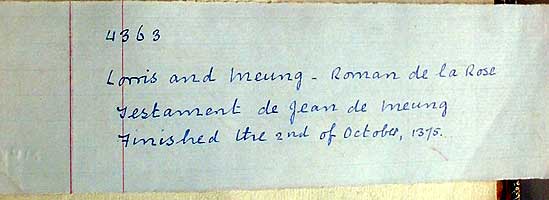 4363
Lorris and Meung - Roman de la Rose
Testament de Jean de Meung
Finished the 2nd of October, 1375.